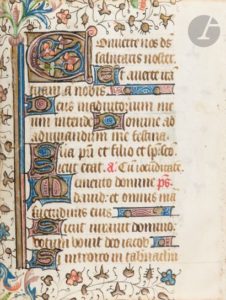 Onverte nos ds
salutaris noster.
Et auerte irā
tuam a nobis
eus in adiutorium me
um intende omine ad
adiuuandum me festina
lia p̄ri et filio et sp̄ c̄to
Sicut erat. a. Cū iocūditate
emento domine ps̄
dauid: et omnis mā
suetudinis eius
icut iurauit domino:
uotum uouit deo iacob
i introiero in tabernacłm